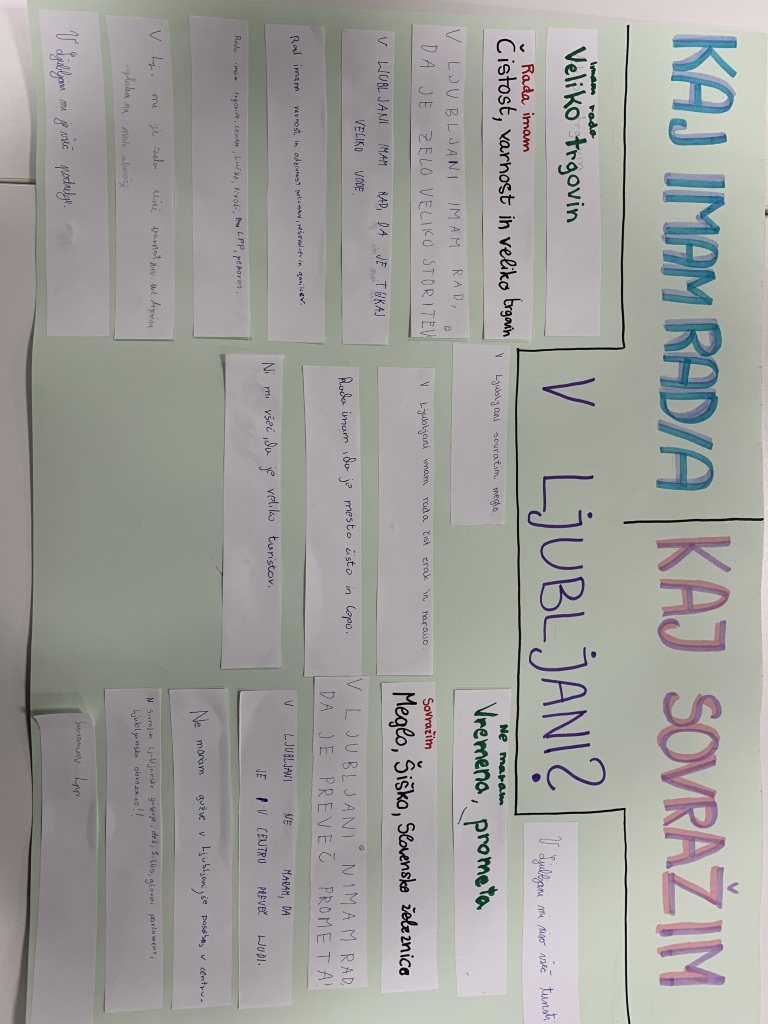 KAJ IMAM RAD/A
KAJ SOVRAŽIM
V LJUBLJANI?
Imam rada
Veliko trgovin
Rada imam
Čistost, varnost in veliko trgovin
V LJUBLJANI IMAM RAD,
DA JE ZELO VELIKO STORITEV
V LJUBLJANI IMAM RAD, DA JE TUKAJ
VELIKO VODE.
Rad imam varnost in odzivnost policistov, reševalcev in gasilcev.
Rada imam trgovine, center, Tivoli, LPP, pekarno.
V Lj. mi je zelo všeč
V Ljubljani mi je všeč
V Ljubljani sovražim meglo.
V Ljubljani imam rada čist zrak in naravo.
Rada imam, da je mesto čisto in lepo.
Ni mi všeč, da je veliko turistov.
V Ljubljani mi niso všeč turisti
Ne maram
Vremena, prometa
Sovražim
Meglo, Šiško, Slovenske železnice
V LJUBLJANI NIMAM RAD,
DA JE PREVEČ PROMETA!
V LJUBLJANI NE MARAM, DA
JE V CENTRU PREVEČ LJUDI.
Ne maram gužve v Ljubljani, še posebej v centru.
Sovražim ljubljanske gužve, dež, Šiško, glavni parlament,
ljubljansko obvoznico!!
Sovražim Lpp